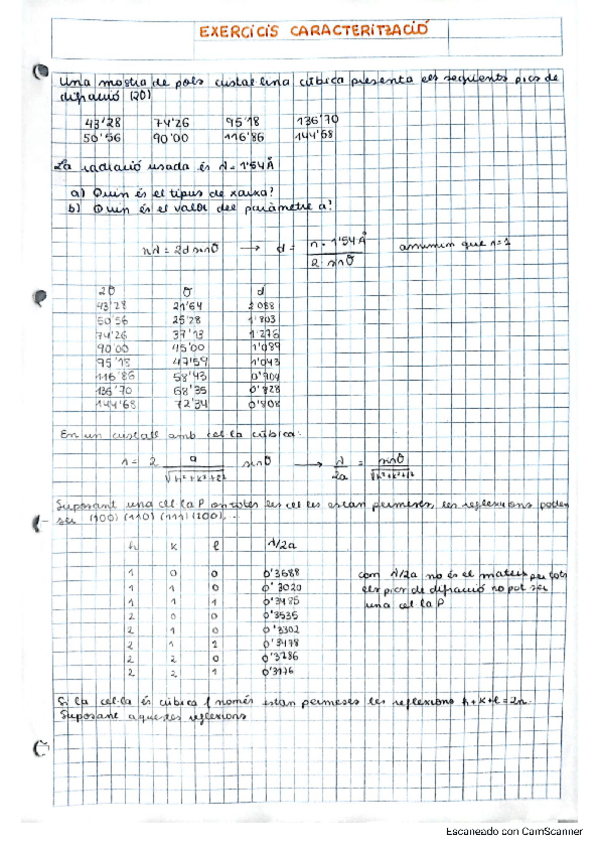 EXERCICIS CARACTERITZACIÓ
Una mostra de pols cristal·lina cúbica presenta els següents pics de
difracció (2θ)
43'28 74'26 95'18 136'70
50'56 90'00 116'86 144'68
La radiació usada és λ= 1'54Å
a) Quin és el tipus de xarxa?
b) Quin és el valor del paràmetre a?
nλ = 2d sinθ → d = n · 1'54Å / 2 · sinθ assumim que n=1
2θ θ d
43'28 21'64 2'088
50'56 25'28 1'803
74'26 37'13 1'276
90'00 45'00 1'089
95'18 47'59 1'043
116'86 58'43 0'904
136'70 68'35 0'828
144'68 72'34 0'808
En un cristall amb cel·la cúbica:
λ = 2 a/√h²+k²+l² sinθ → λ/2a = sinθ/√h²+k²+l²
Suposant una cel·la P on totes les cel·les estan permeses, les reflexions poden
ser (100) (110) (111) (200)...
h k l λ/2a
1 0 0 0'3688
1 1 0 0'3020
1 1 1 0'3485
2 0 0 0'3535
2 1 0 0'3302
2 1 1 0'3478
2 2 0 0'3286
2 2 1 0'3176
com λ/2a no és el mateix per tots
els pics de difracció no pot ser
una cel·la P
Si la cel·la és cúbica I només estan permeses les reflexions h+k+l=2n.
Suposant aquestes reflexions
Escaneado con CamScanner